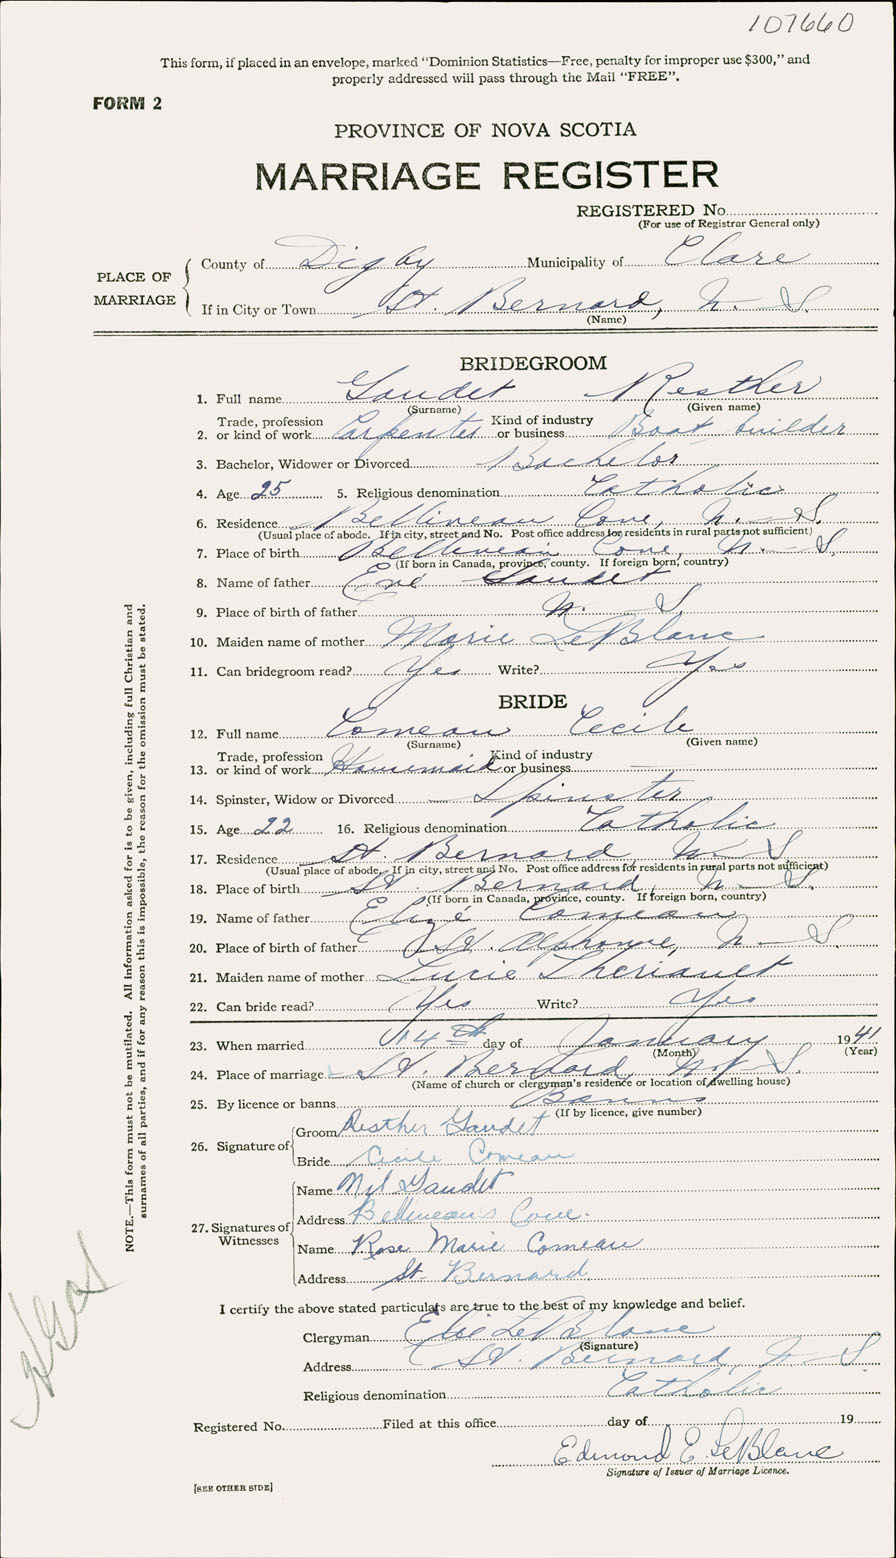 107660
This form, if placed in an envelope, marked "Dominion Statistics—Free, penalty for improper use $300," and
properly addressed will pass through the Mail "FREE".
FORM 2
PROVINCE OF NOVA SCOTIA
MARRIAGE REGISTER
REGISTERED No
(For use of Registrar General only)
PLACE OF MARRIAGE
County of Digby Municipality of Clare
If in City or Town St. Bernard, N. S.
(Name)
BRIDEGROOM
1. Full name Gaudet Resther
(Surname) (Given name)
2. Trade, profession or kind of work Carpenter Kind of industry or business Boat builder
3. Bachelor, Widower or Divorced Bachelor
4. Age 25 5. Religious denomination Catholic
6. Residence Bellineau Cove, N. S.
(Usual place of abode. If in city, street and No. Post office address for residents in rural parts not sufficient)
7. Place of birth Belliveau Cove, N. S.
(If born in Canada, province, county. If foreign born, country)
8. Name of father Gaudet
9. Place of birth of father N. S.
10. Maiden name of mother Marie LeBlanc
11. Can bridegroom read? Yes Write? Yes
BRIDE
12. Full name Comeau Cecile
(Surname) (Given name)
13. Trade, profession or kind of work Housemaid Kind of industry or business
14. Spinster, Widow or Divorced Spinster
15. Age 22 16. Religious denomination Catholic
17. Residence St. Bernard N. S.
(Usual place of abode. If in city, street and No. Post office address for residents in rural parts not sufficient)
18. Place of birth St. Bernard, N. S.
(If born in Canada, province, county. If foreign born, country)
19. Name of father Elizé Comeau
20. Place of birth of father St. Alphonse, N. S.
21. Maiden name of mother Lucie Theriault
22. Can bride read? Yes Write? Yes
23. When married 14th day of January 1941
(Month) (Year)
24. Place of marriage St. Bernard, N. S.
(Name of church or clergyman's residence or location of dwelling house)
25. By licence or banns Banns
(If by licence, give number)
26. Signature of Groom Resther Gaudet
Bride Cecile Comeau
27. Signatures of Witnesses
Name Gaudet
Address Belliveau's Cove.
Name Rose Marie Comeau
Address St. Bernard
I certify the above stated particulars are true to the best of my knowledge and belief.
Clergyman LeBlanc
(Signature)
Address St. Bernard, N. S.
Religious denomination Catholic
Registered No. Filed at this office day of 19
Edmond E. LeBlanc
Signature of Issuer of Marriage Licence.
[SEE OTHER SIDE]
NOTE.—This form must not be mutilated. All information asked for is to be given, including full Christian and
surnames of all parties, and if for any reason this is impossible, the reason for the omission must be stated.